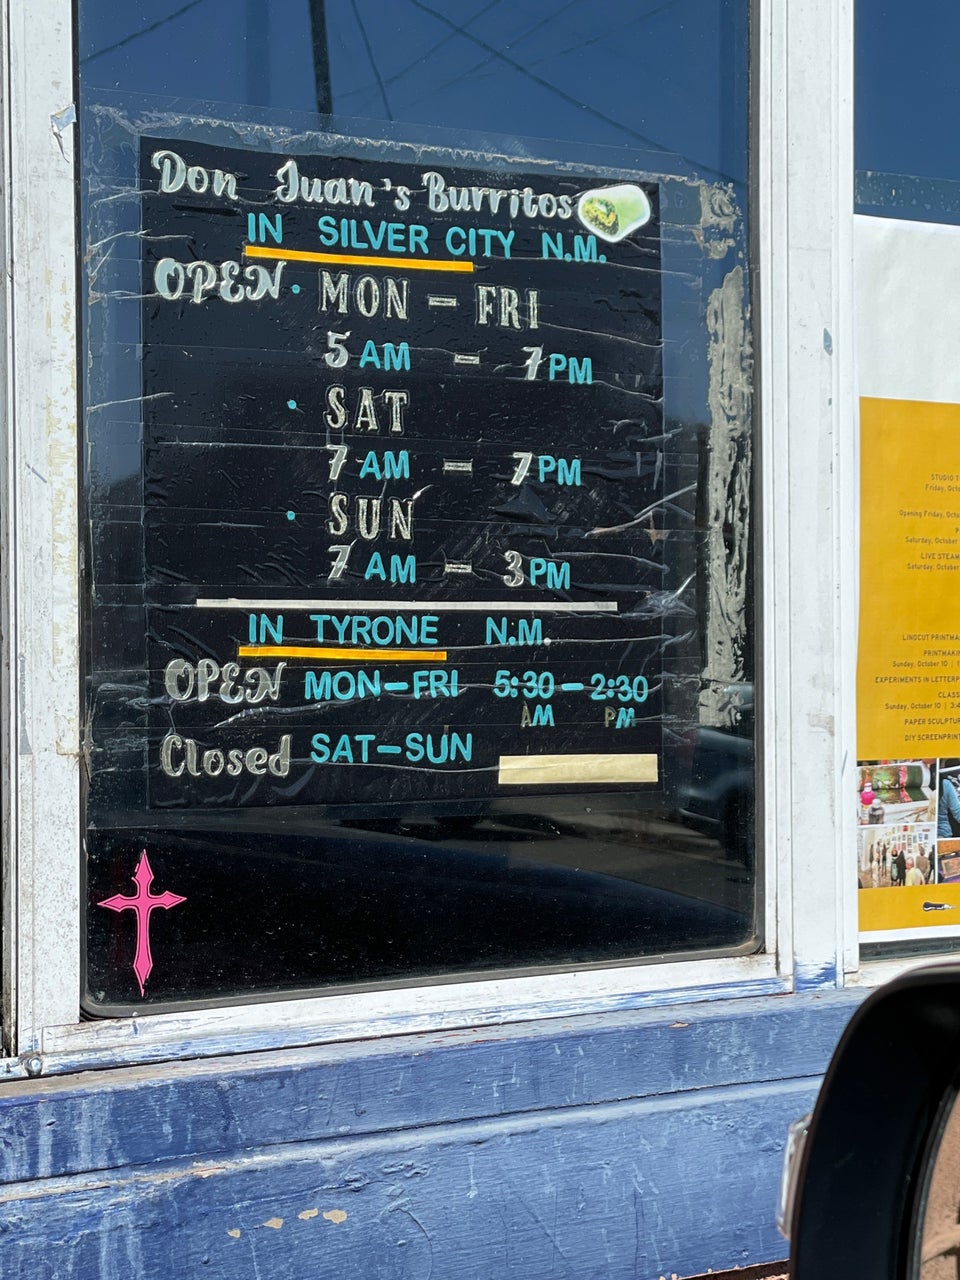 Don Juan's Burritos
IN SILVER CITY N.M.
OPEN • MON - FRI
5 AM - 7 PM
• SAT
7 AM - 7 PM
• SUN
7 AM - 3 PM
IN TYRONE N.M.
OPEN MON-FRI 5:30-2:30
AM PM
Closed SAT-SUN
STUDIO T
Friday, Octo
Opening Friday, Octo
P
Saturday, October
LIVE STEAM
Saturday, October
LINOCUT PRINTMA
PRINTMAKIN
Sunday, October 10 |
EXPERIMENTS IN LETTERP
CLASS
Sunday, October 10 | 3:4
PAPER SCULPTUR
DIY SCREENPRIN